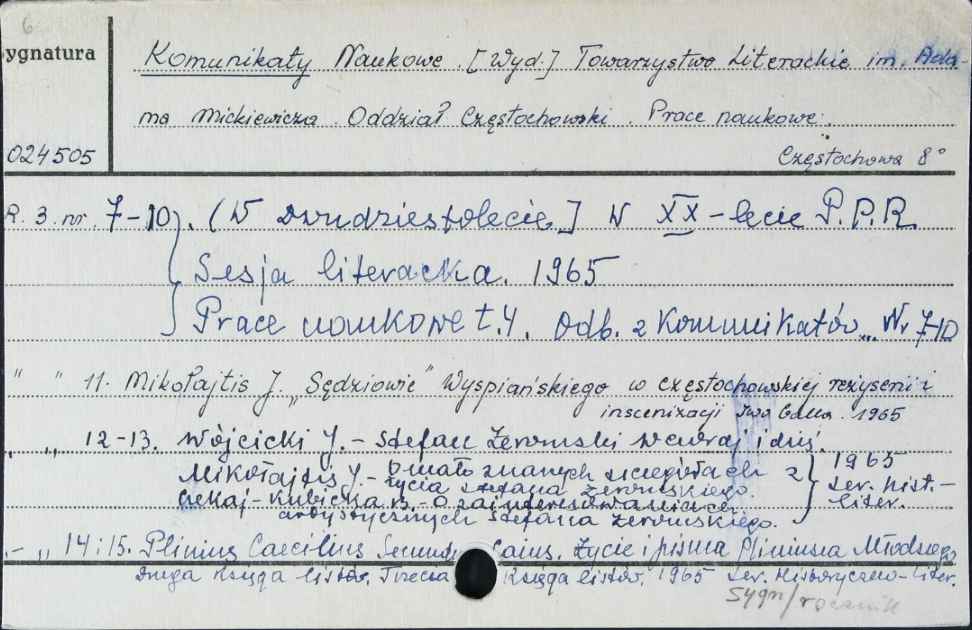 6
ygnatura
Komunikaty Naukowe. [Wyd.] Towarzystwo Literackie im. Ada-
ma Mickiewicza. Oddział Częstochowski. Prace naukowe.
024505
Częstochowa 8°
R. 3. nr. 7-10. (W dwudziestolecie] W XX-lecie P.P.R.
Sesja literacka. 1965
Prace naukowe t.4. Odb. z Komunikatów... Nr 7-10
" " 11. Mikołajtis J. „Sędziowie" Wyspiańskiego w częstochowskiej reżyserii i
inscenizacji Iwa Galla. 1965
" " 12-13. Wójcicki J. - Stefan Żeromski wczoraj i dziś.
Mikołajtis J. - O mało znanych szczegółach z
życia Stefana Żeromskiego.
Kubicka B. - O zainteresowaniach
artystycznych Stefana Żeromskiego.
1965
Ser. hist.-
liter.
.- " 14:15. Plinius Caecilius Secundus Caius. Życie i pisma Pliniusza Młodszego
Druga księga listów. Trzecia Księga listów. 1965 Ser. Historyczno-liter.
Sygn/rocznik